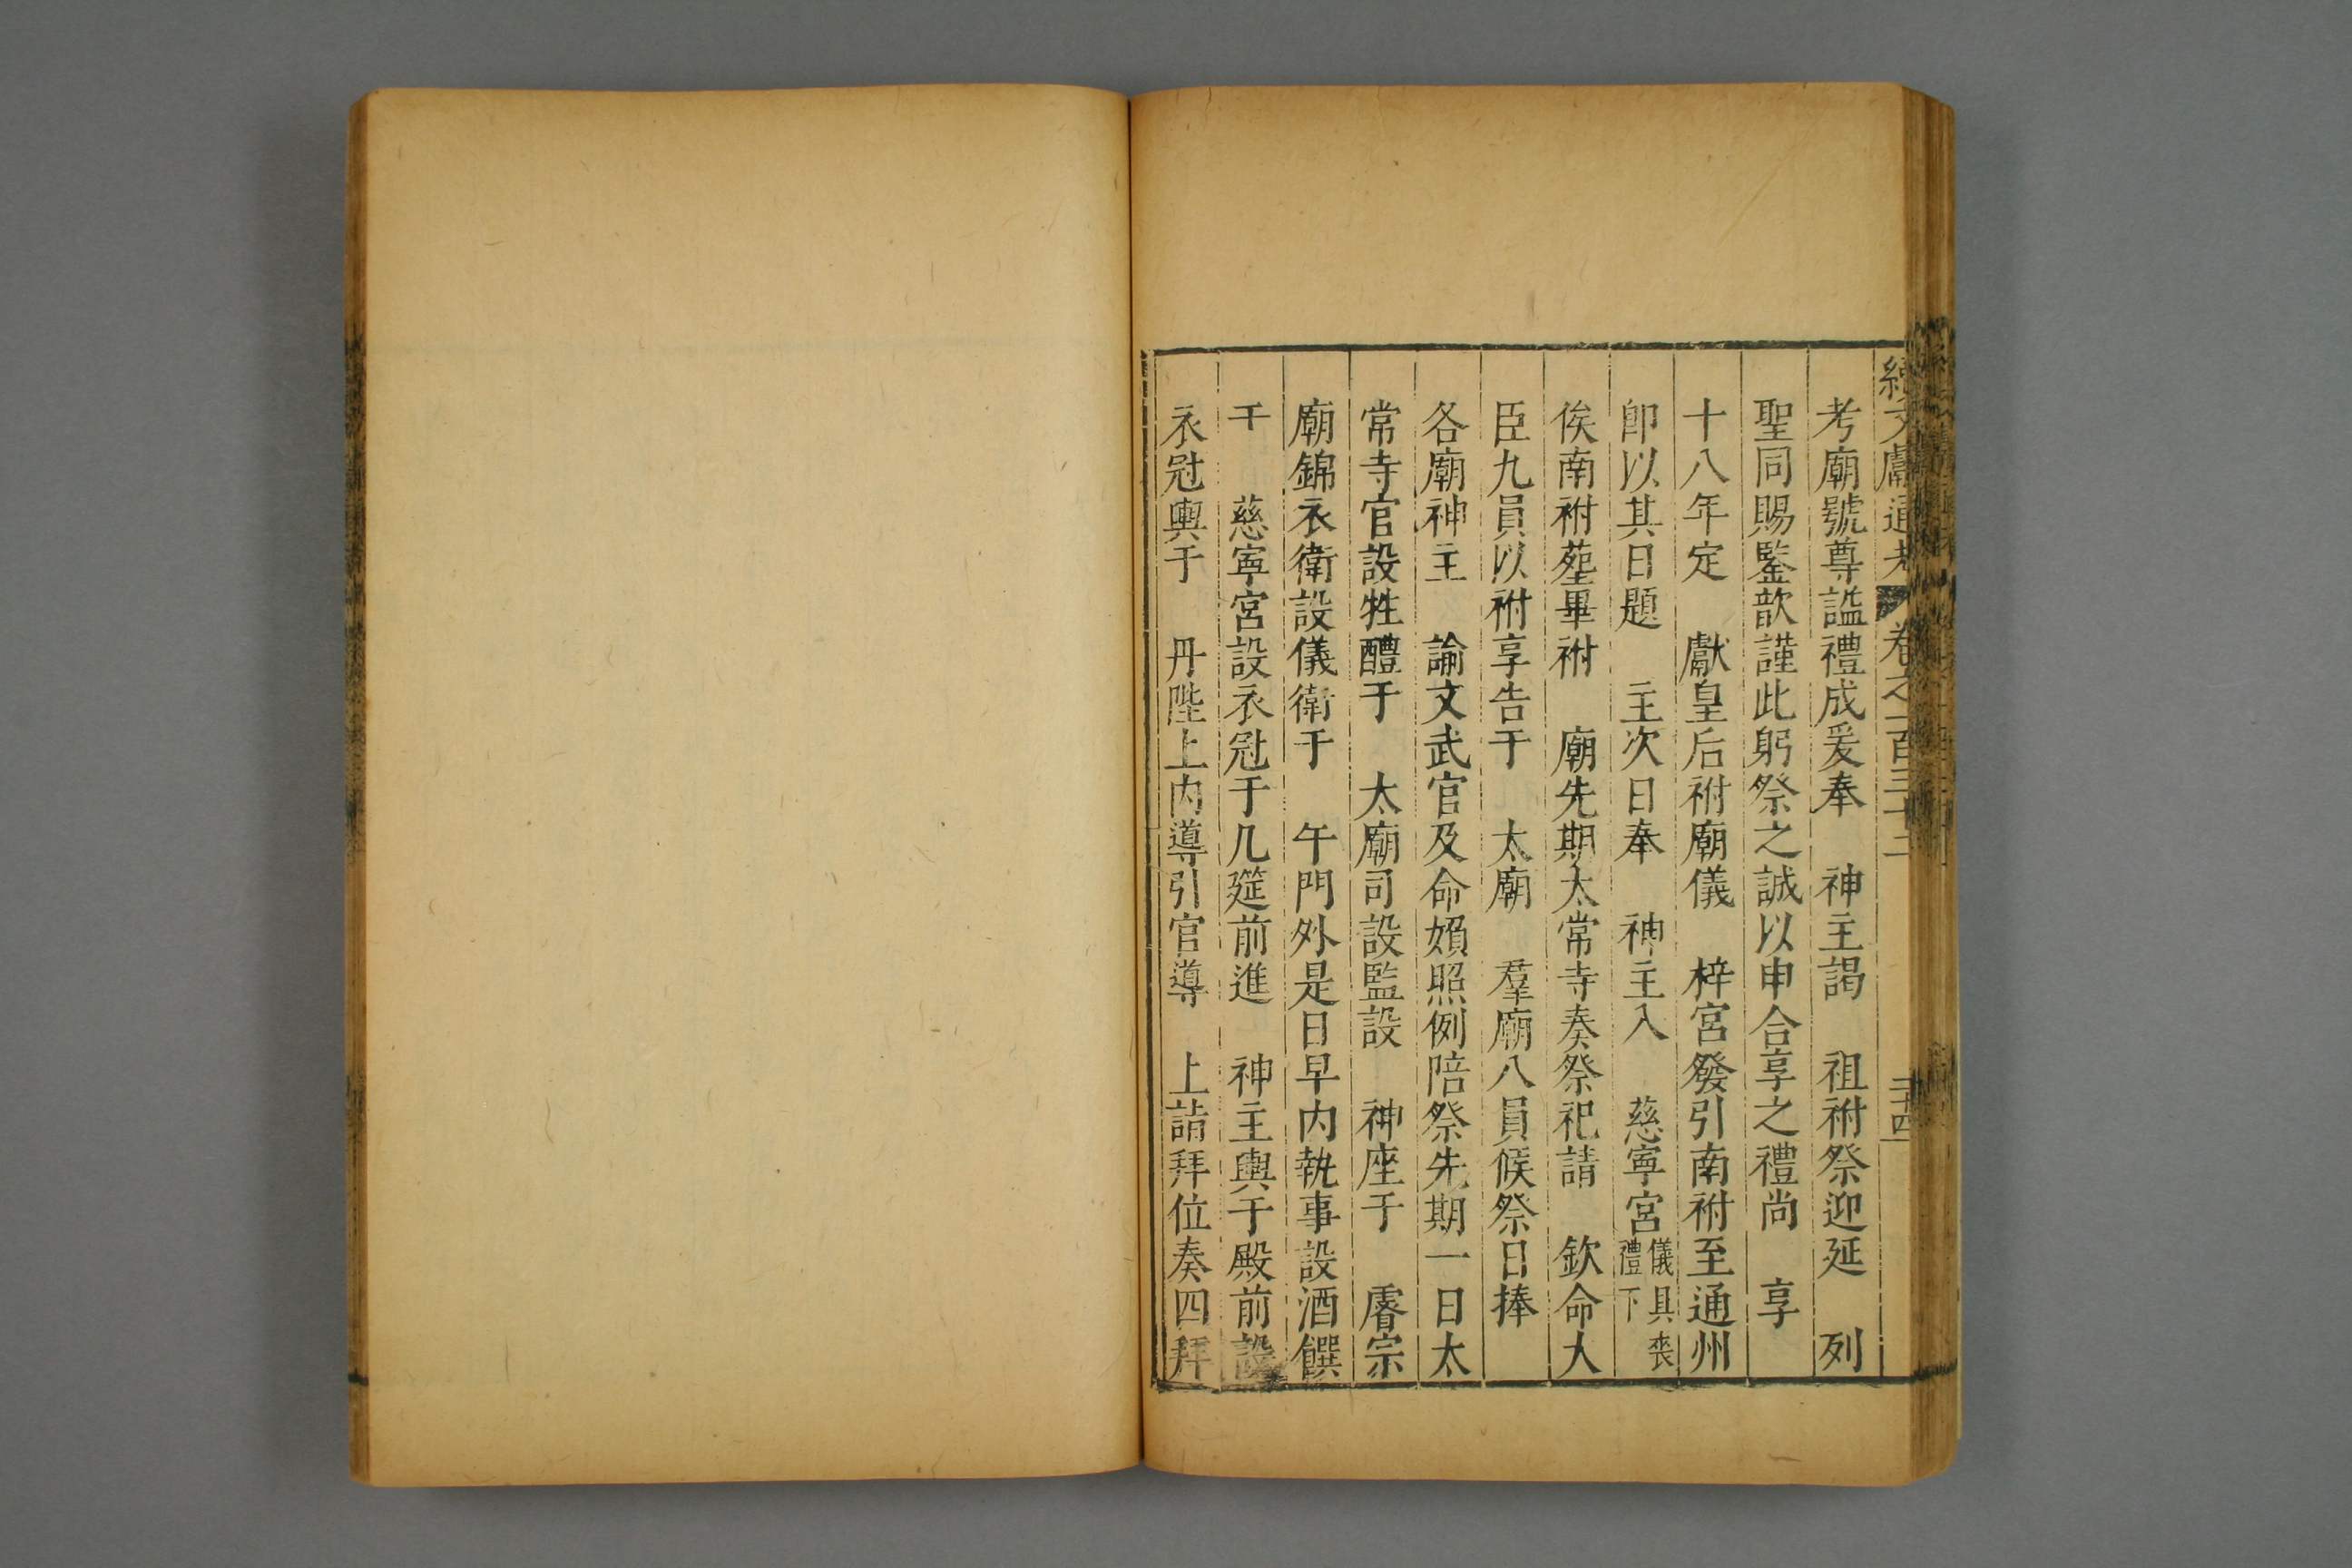 續文獻通考 卷之一百三十二 三十四
考廟號尊謚禮成爰奉 神主謁 祖祔祭迎延 列
聖同賜鍳歆謹此躬祭之誠以申合享之禮尚 享
十八年定 獻皇后祔廟儀 梓宮發引南祔至通州
卽以其日題 主次日奉 神主入 慈寧宮儀具喪禮下
俟南祔塟畢祔 廟先期太常寺奏祭祀請 欽命大
臣九員以祔享告于 太廟 羣廟八員候祭日捧
各廟神主 諭文武官及命婦照例陪祭先期一日太
常寺官設牲醴于 太廟司設監設 神座于 睿宗
廟錦衣衛設儀衛于 午門外是日早內執事設酒饌
于 慈寧宮設衣冠于几筵前進 神主輿于殿前設
衣冠輿于 丹陛上內導引官導 上詣拜位奏四拜